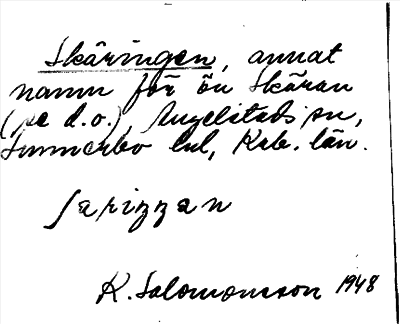 Skäringen, annat
namn för ön Skäran
(se d.o.), Angelstads sn,
Sunnerbo hd, Krb. län.
K. Salomonsson 1948